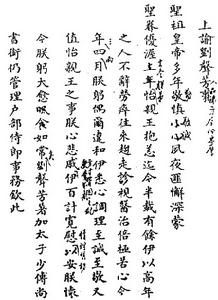 上諭劉聲芳
聖祖皇帝多年敬慎小心夙夜匪懈深蒙
聖眷優渥上年怡親王抱恙迄今半載有餘伊以高年
之人不辭勞瘁往來趨走診視醫治倍極苦心今
年四月朕躬偶爾違和伊悉心調理至誠至敬又
值怡親王之事朕心悲戚伊百計寬慰以安朕懷
今朕躬大愈眠食如常劉聲芳著加太子少傅尚
書銜仍管理戶部侍郎事務欽此